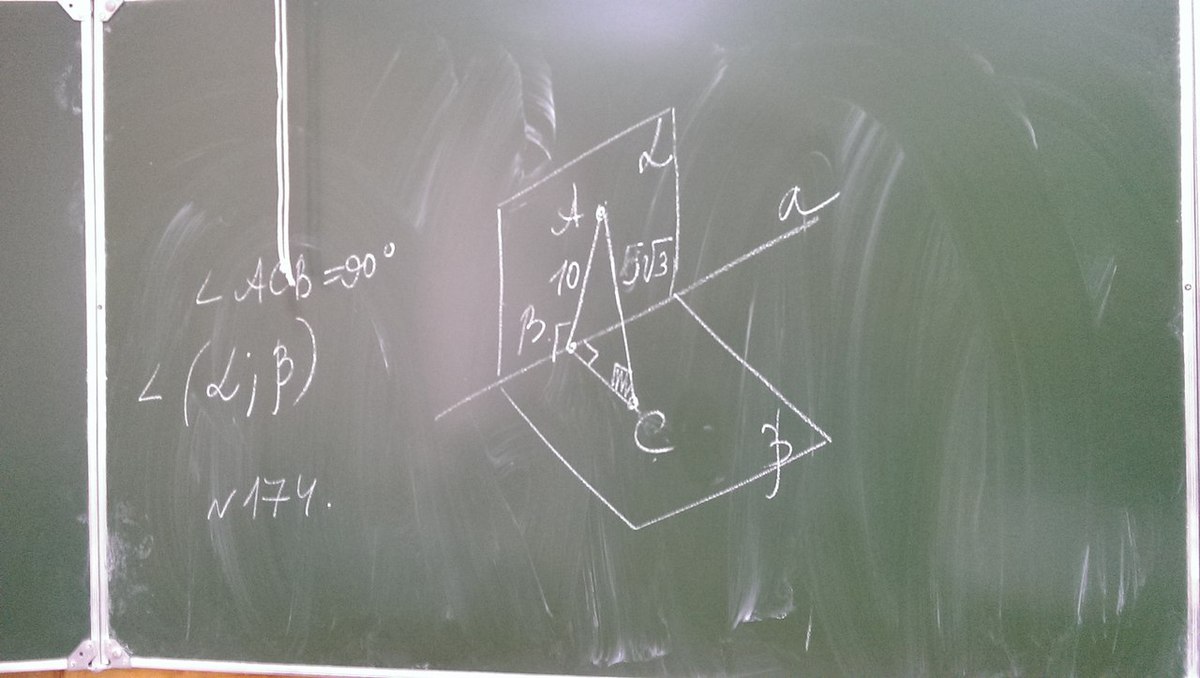 ∠ ACB = 90°
∠ (α; β)
N 174.
α
a
A
10
5√3
B
C
β